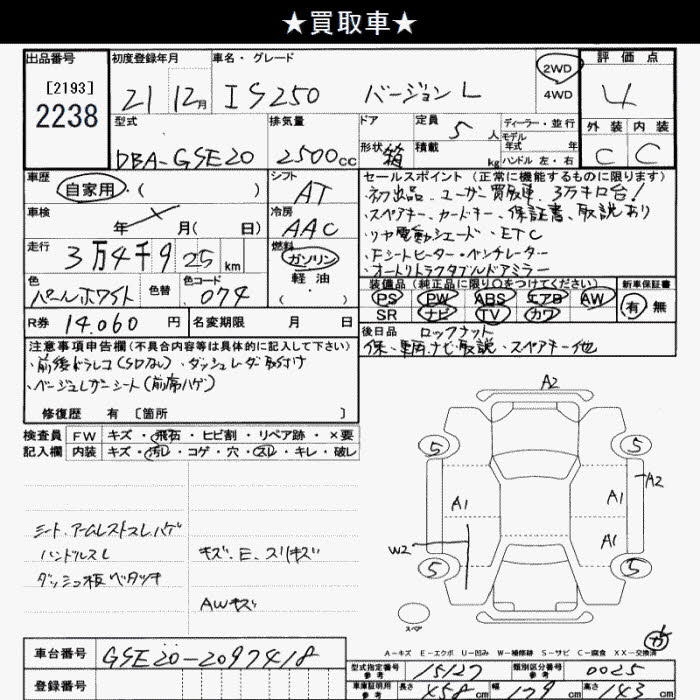 ★買取車★
出品番号 初度登録年月 車名・グレード 評価点
[2193]
2238
21 12月 IS250 バージョンL 2WD 4WD 4
型式 排気量 ドア 定員 5人 ディーラー・並行 外装 内装
モデル年式 年
DBA-GSE20 2500cc 形状 箱 積載 kg ハンドル 左・右 C C
車歴 シフト セールスポイント(正常に機能するものに限ります)
自家用・( ) AT 初出品、ユーザー買取車、3万キロ台!
車検 冷房 ・スペアキー、カードキー、保証書、取説あり
年 月( 日) AAC ・リヤ電動シェード・ETC
走行 燃料 ・Fシートヒーター・ベンチレーター
3万4千9 25 km ガソリン ・オートリトラクタブルドアミラー
色 色替 色コード 軽油 装備品(純正品に限り○をつけてください) 新車保証書
パールホワイト 074 ・( ) PS PW ABS エアB AW 有 無
SR ナビ TV カワ
R券 14.060 円 名変期限 月 日 後日品 ロックナット
注意事項申告欄(不具合内容等は具体的に記入して下さい) 保、車両、ナビ取説、スペアキー他
・前後ドラレコ(SDなし)・ダッシュレーダー取付け
・ベージュレザーシート(前席ハゲ)
修復歴 有 〔箇所 〕
検査員 FW キズ・飛石・ヒビ割・リペア跡・×要
記入欄 内装 キズ・汚れ・コゲ・穴・スレ・キレ・破レ
A2
5 5
A2
A1 A1
W2 A1
5 5
シート、アームレストスレ、ハゲ
ハンドルスレ キズ、E、スリキズ
ダッシュ板ベタツキ
AWキズ
スペア
A−キズ E−エクボ U−凹み W−補修跡 S−サビ C−腐食 XX−交換済
車台番号 GSE20-2097418
登録番号
型式指定番号 参考 15127 類別区分番号 参考 0025
車庫証明用 参考 長さ 458 cm 幅 179 cm 高さ 143 cm